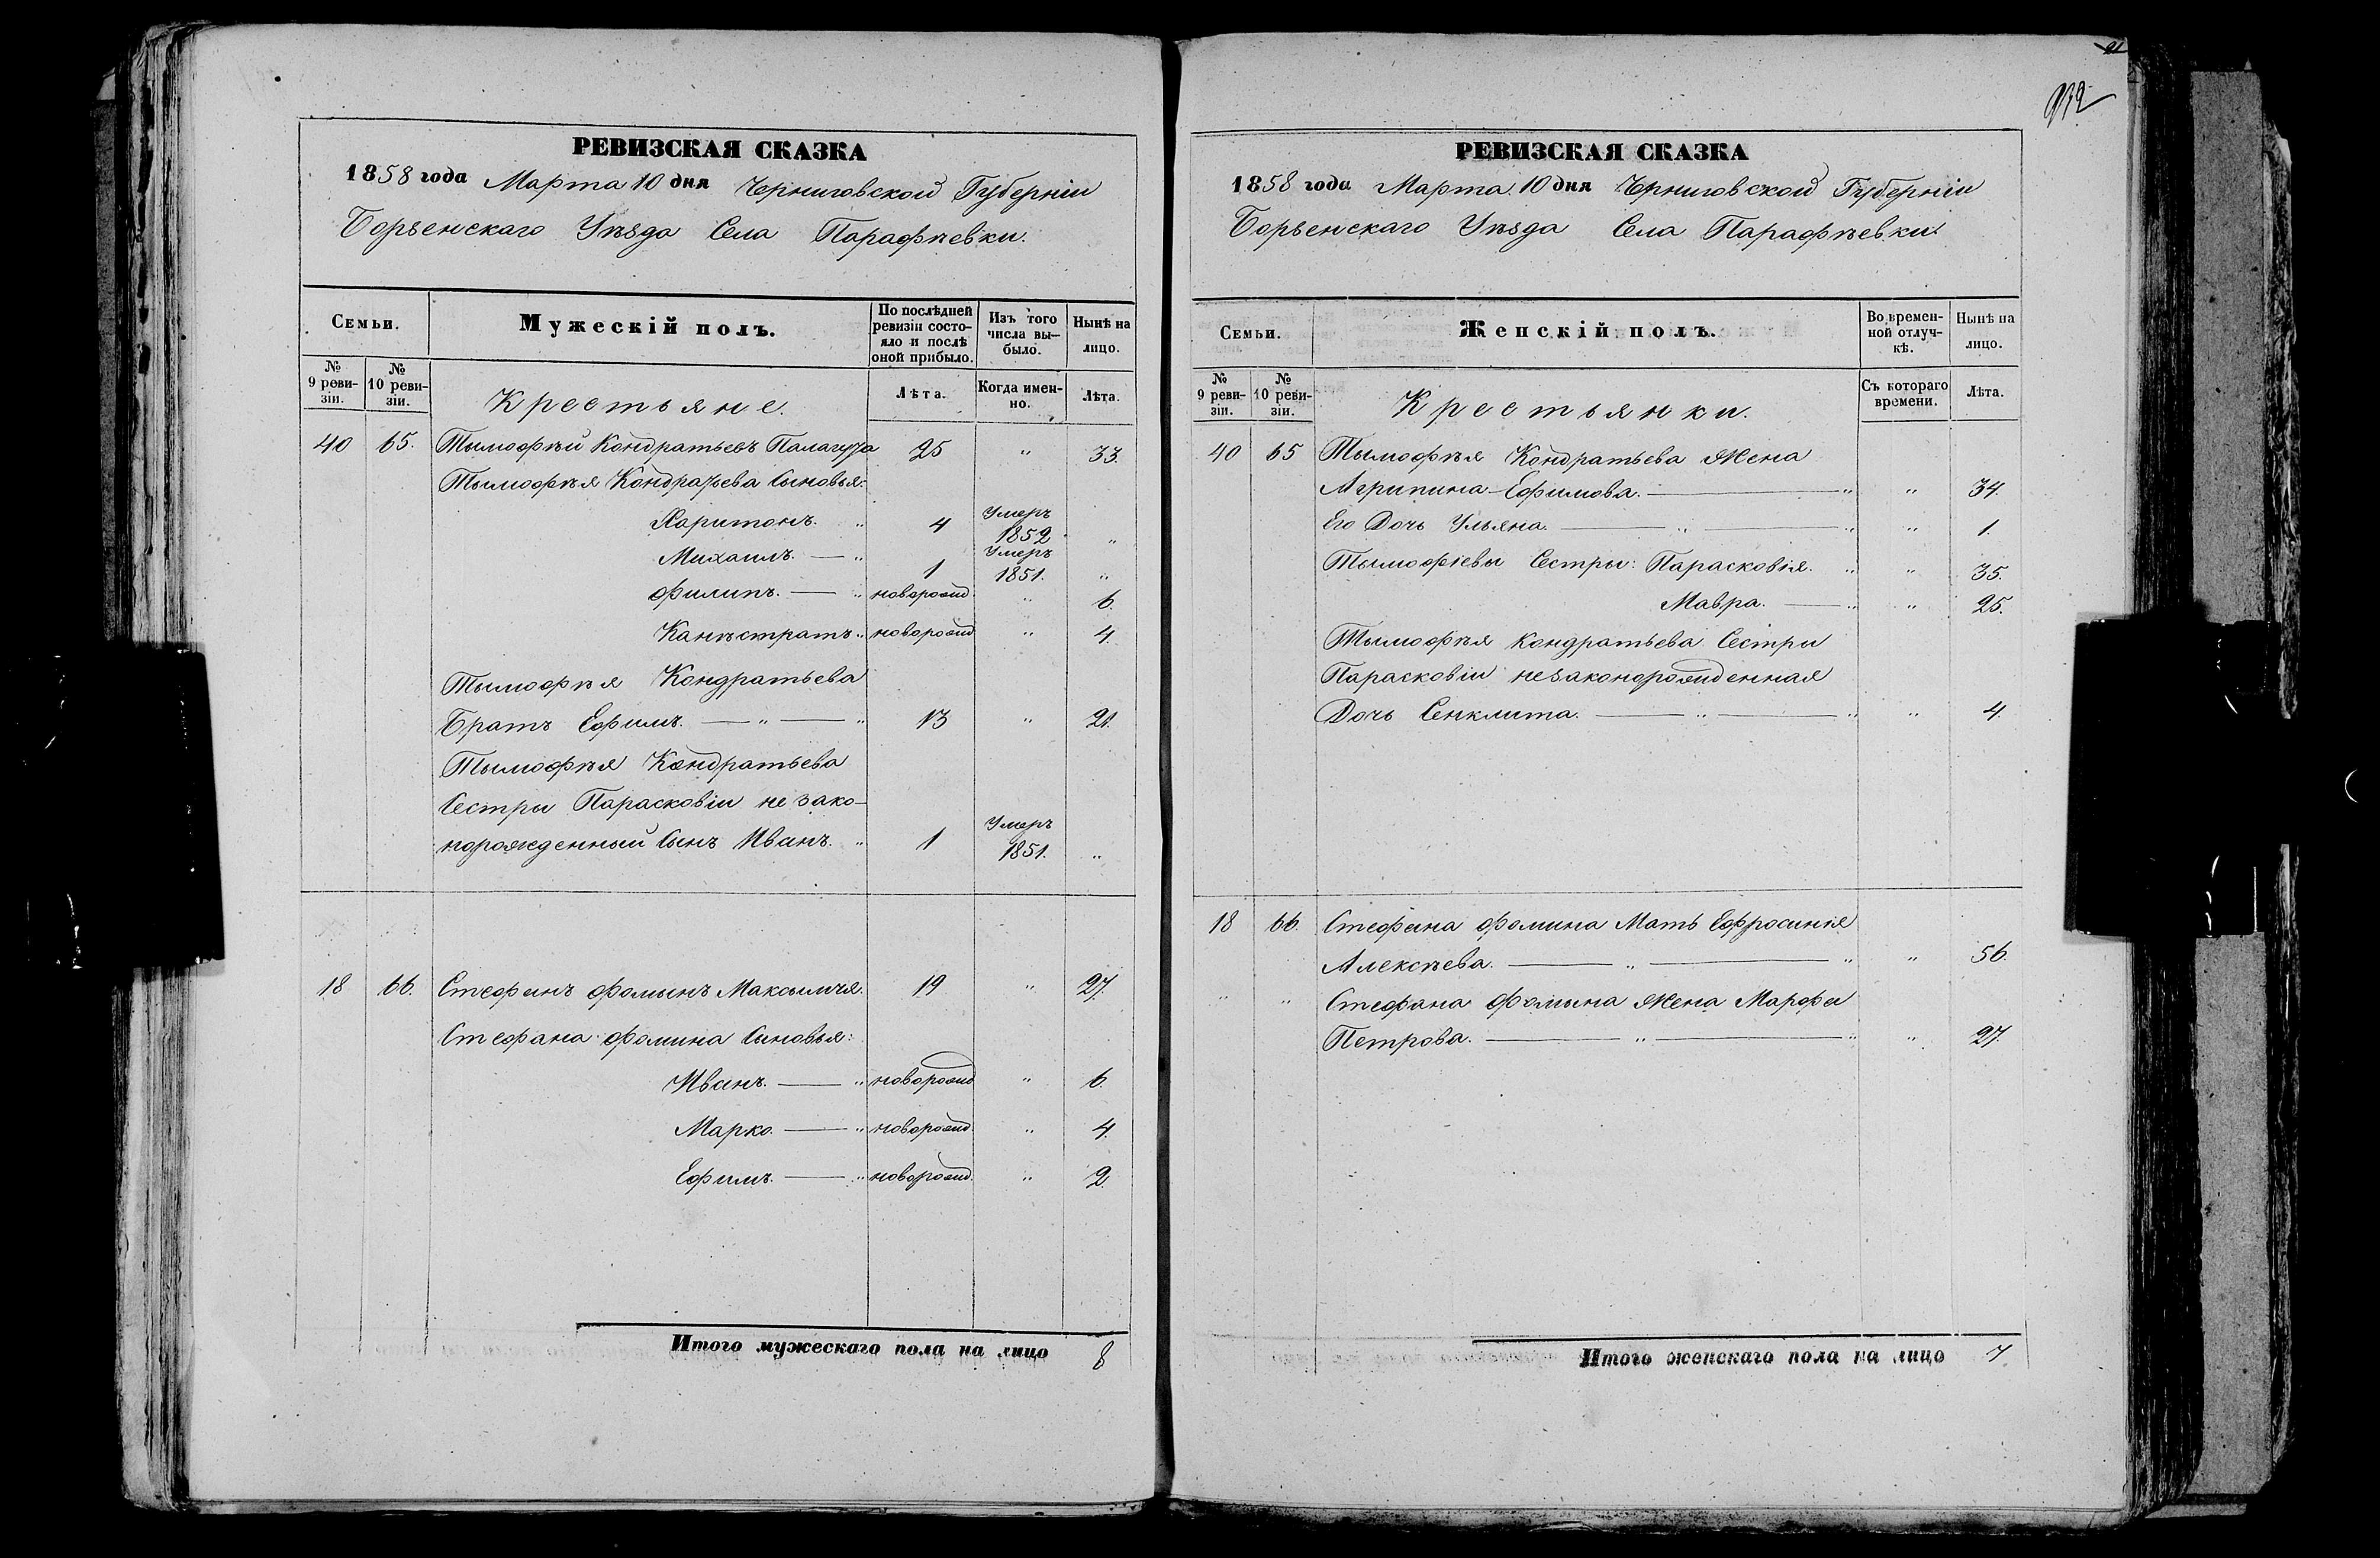 РЕВИЗСКАЯ СКАЗКА
1858 года Марта 10 дня Черниговской Губерніи
Борзенскаго Уѣзда Села Парафѣевки.
Семьи.
Мужескій полъ.
По послѣдней ревизіи состояло и послѣ оной прибыло.
Изъ того числа выбыло.
Нынѣ на лицо.
№ 9 ревизіи.
№ 10 ревизіи.
Крестьяне.
Лѣта.
Когда именно.
Лѣта.
40 65. Тымофѣй Кондратьевъ Палагуза 25 " 33.
Тымофѣя Кондратьева Сыновья:
Харитонъ. " 4 Умеръ 1852 "
Михаилъ. — " 1 Умеръ 1851. "
Филипъ. — " новорожд. " 6.
Канѣстратъ. " новорожд " 4.
Тымофѣя Кондратьева
Братъ Ефимъ. — " — " 13 " 21.
Тымофѣя Кондратьева
Сестры Парасковіи не зако-
норожденный Сынъ Иванъ. " 1 Умеръ 1851. "
18 66. Стефанъ Фомынъ Максымчя. 19 " 27.
Стефана Фомина Сыновья:
Иванъ. — " новорожд " 6.
Марко. — " новорожд. " 4.
Ефимъ. — " новорожд. " 2.
Итого мужескаго пола на лицо 8
21
РЕВИЗСКАЯ СКАЗКА
1858 года Марта 10 дня Черниговской Губерніи
Борзенскаго Уѣзда Села Парафѣевки.
Семьи.
Женскій полъ.
Во временной отлучкѣ.
Нынѣ на лицо.
№ 9 ревизіи.
№ 10 ревизіи.
Крестьянки.
Съ котораго времени.
Лѣта.
40 65 Тымофѣя Кондратьева Жена
Агрипина Ефимова. — " " 34.
Его Дочь Ульяна. — " — " " 1.
Тымофіевы Сестры: Парасковія. " " 35.
Мавра. — " " 25.
Тымофѣя Кондратьева Сестры
Парасковіи незаконорожденная
Дочь Сенклита. — " — " " 4.
18 66. Стефана Фомина Мать Ефросинія
Алексѣева. — " — " " 56.
" " Стефана Фомына Жена Марфа
Петрова. — " — " " 27.
Итого женскаго пола на лицо 7.